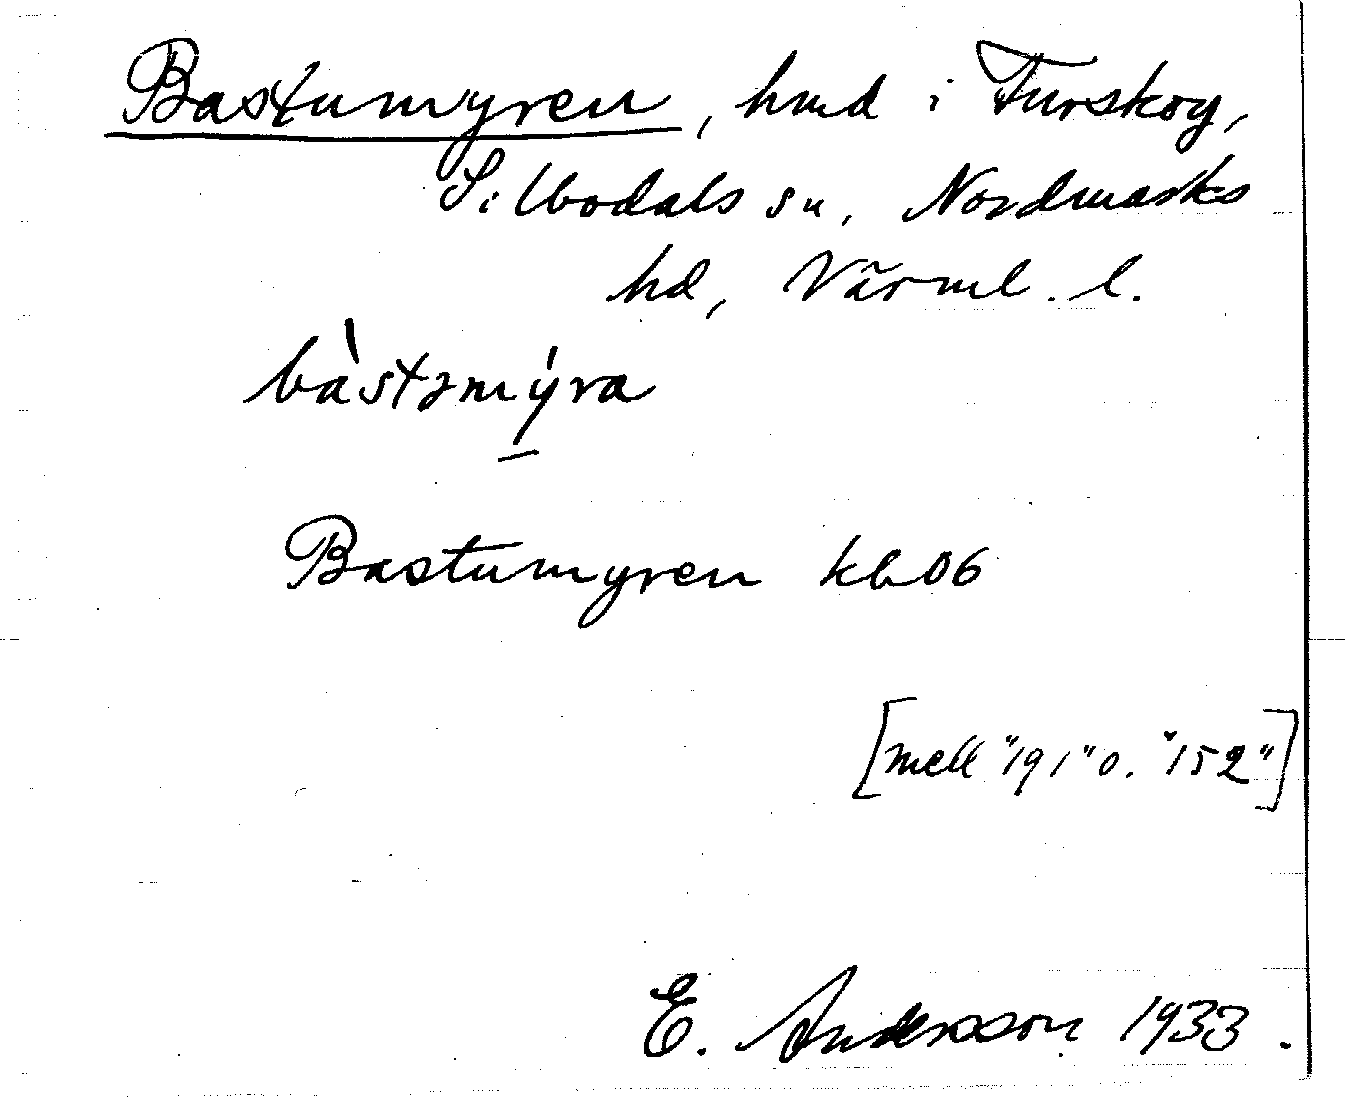 Bastumyren, hmd i Turskog,
Silbodals sn, Nordmarks
hd, Värml. l.
bàstəmý̱ra
Bastumyren kb06
[mell "191" o. "152"]
E. Andersson 1933.